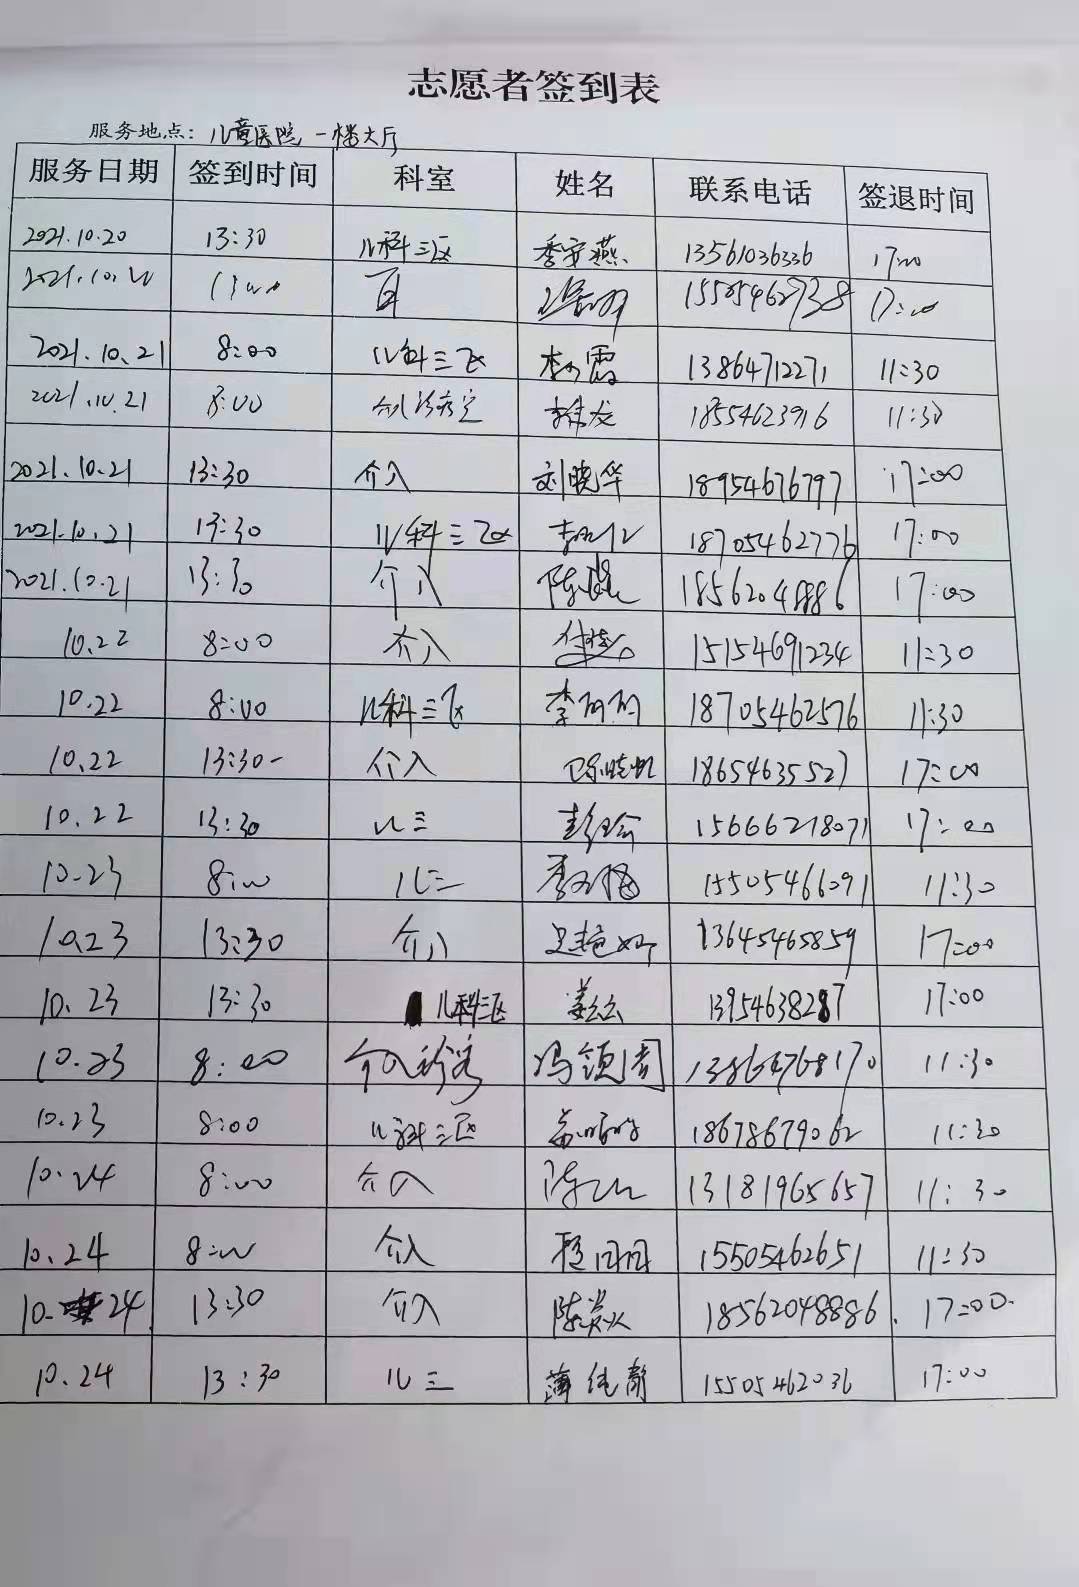 志愿者签到表
服务地点：儿童医院 一楼大厅
服务日期 签到时间 科室 姓名 联系电话 签退时间
2021.10.20 13:30 儿科三区 季安燕 13561036336 17:00
2021.10.20 15505462938 17:00
2021.10.21 8:00 儿科三区 霞 13864712271 11:30
2021.10.21 8:00 18554623916 11:30
2021.10.21 13:30 介入 刘晓华 18954676797 17:00
2021.10.21 13:30 儿科三区 18705462776 17:00
2021.10.21 13:30 介入 陈 18562048886 17:00
10.22 8:00 介入 15154691234 11:30
10.22 8:00 儿科三区 李丽丽 18705462576 11:30
10.22 13:30 介入 18654635527 17:00
10.22 13:30 儿三 15666218071 17:00
10.23 8:00 儿三 15505466091 11:30
10.23 13:30 介入 13645465859 17:00
10.23 13:30 儿科三区 姜云云 13954638287 17:00
10.23 8:00 介入诊疗 冯领周 13864768170 11:30
10.23 8:00 儿科三区 18678679062 11:30
10.24 8:00 介入 陈 13181965657 11:30
10.24 8:00 介入 程丹丹 15505462651 11:30
10.24 13:30 介入 陈 18562048886 17:00
10.24 13:30 儿三 薄纯静 15505462036 17:00